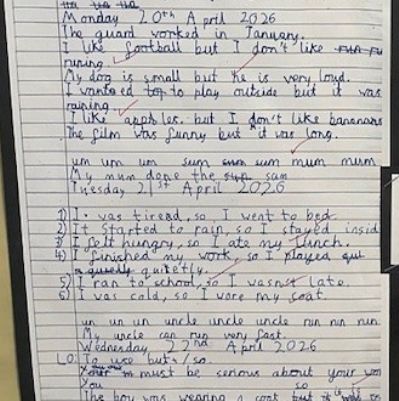 Monday 20th April 2026
The guard worked in January.
I like football but I don't like
runing.
My dog is small but he is very loud.
I wanted to play outside but it was
raining.
I like apples but I don't like bananans
The film was funny but it was long.
um um um sum sum mum mum
My mum done the sum
Tuesday 21st April 2026
1) I was tiread, so I went to bed.
2) It started to rain, so I stayed insid
3) I felt hungry, so I ate my lunch.
4) I finished my work, so I played
quitetly.
5) I ran to school, so I wasn't late.
6) I was cold, so I wore my coat.
un un un uncle uncle uncle run run run
My uncle can run very fast.
Wednesday 22nd April 2026
LO: To use but / so.
You must be serious about your
so
The boy was wearing a coat but it was